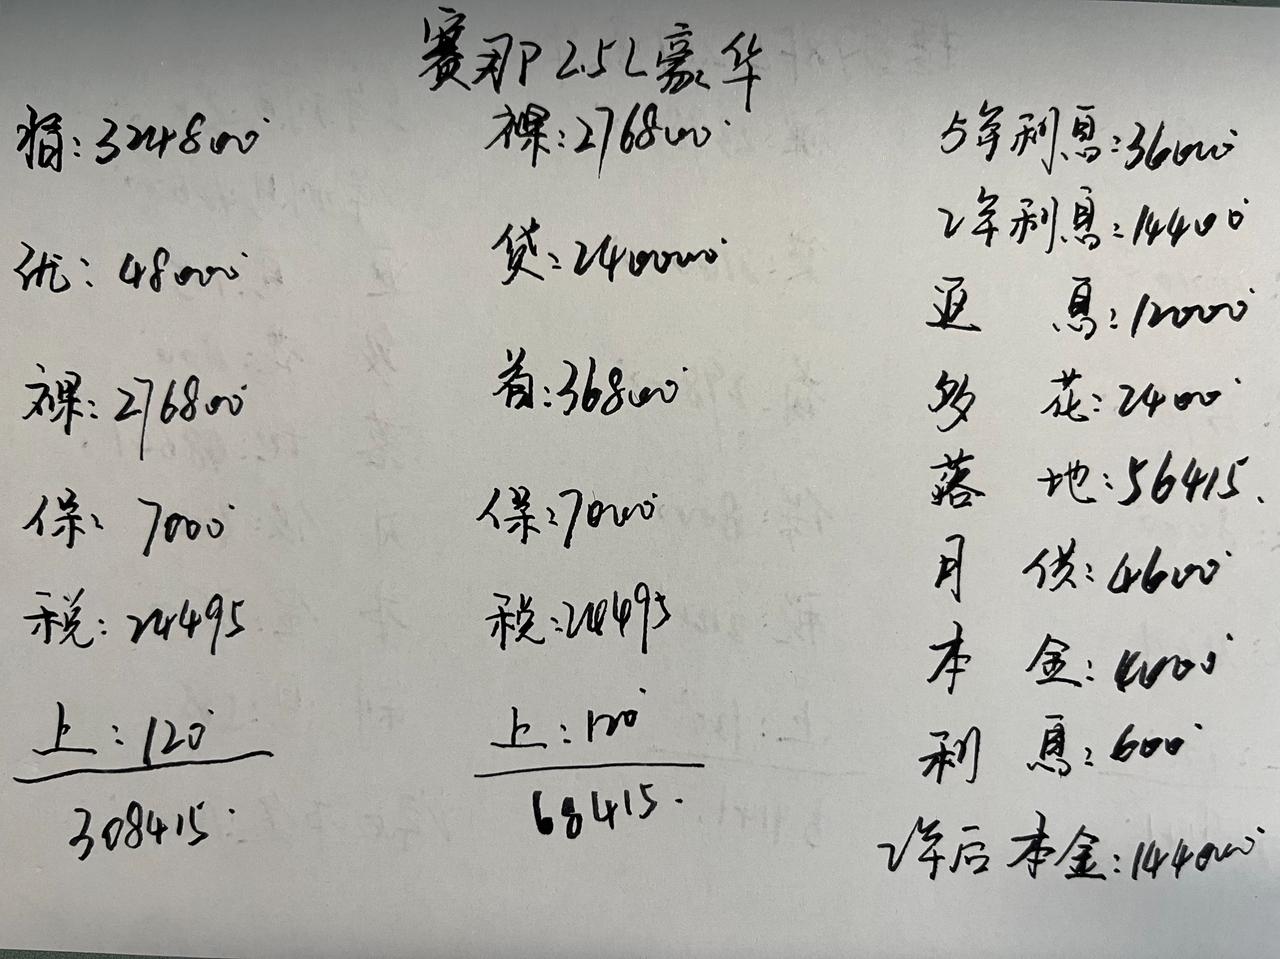 赛那 2.5L豪华
指:324800
优:48000
裸:276800
保:7000
税:24495
上:120
308415.
裸:276800
贷:240000
首:36800
保:7000
税:24495
上:120
68415.
5年利息:36000
2年利息:14400
返 息:12000
多 花:2400
落 地:56415.
月 供:4600
本 金:4000
利 息:600
2年后本金:144000